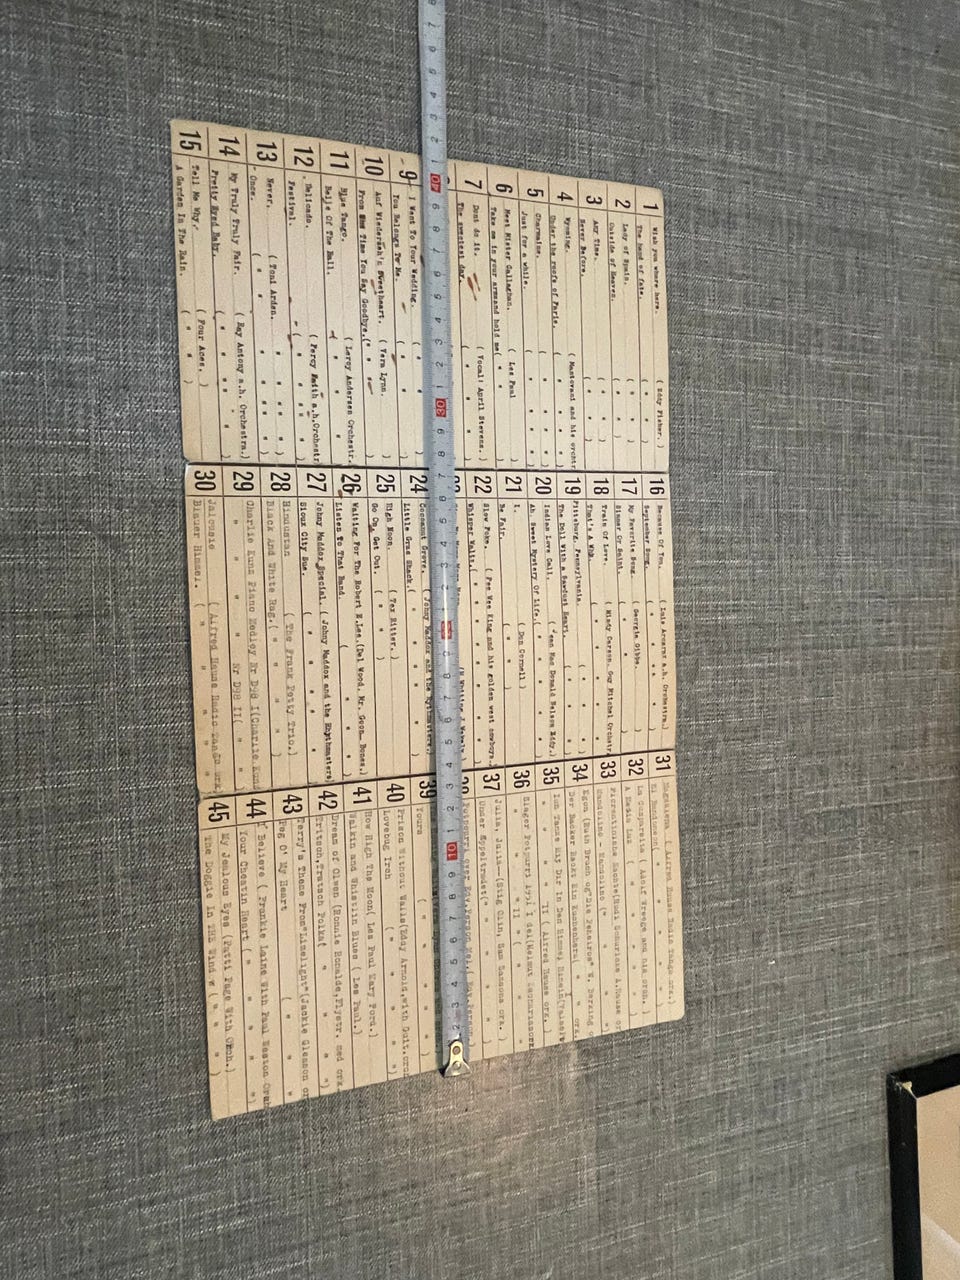 1 Wish you where here. ( Eddy Fisher. )
The hand of fate. ( " " )
2 Lady of Spain. ( " " )
Outside of Heaven. ( " " )
3 Any Time. ( " " )
Never Before. ( " " )
4 Wyoming. ( Mantovani and his orchtr
Under the roofs of Paris. ( " " " " )
5 Charmaine. ( " " " " )
Just for a while. ( " " " " )
6 Meet Mister Callaghan. ( Les Paul )
Take me in your armsand hold me( " " )
7 Dont do it. ( Vocal: April Stevens. )
The sweetest day. ( " " " )
9 I Went To Your Wedding. ( " "
You Belongs To Me. ( " "
10 Auf Wiederseh'n Sweetheart. ( Vera Lynn.
From The Time You Say Goodbye.( " " )
11 Blue Tango. ( Leroy Anderson Orchestr.
Belle Of The Ball. " "
12 Delicado. ( Percy Faith a.h.Orchestr
Festival. ( " " " " )
13 Never. ( Toni Arden. )
Once. ( " " )
14 My Truly Truly Fair. ( Ray Antony a.h. Orchestra.)
Pretty Eyed Baby. ( " " " " )
15 Tell Me Why. ( Four Aces. )
A Garden In The Rain. ( " " )
16 Because Of You. ( Luis Arcaraz a.h. Orchestra.)
September Song. " " " "
17 My Favorite Song. ( Georgia Gibbs.
Sinner Or Saint. ( " "
18 Train Of Love. ( Mindy Carson. Guy Mitchel Orchestr
That's A Why. ( " " " "
19 Pittsburg, Pennsylvania. ( " " )
The Doll With a Sawdust Heart. ( " "
20 Indian Love Call. ( Jean Mac Donald Nelson Eddy.)
Ah Sweet Mystery Of Life.( " " " "
21 I. ( Don Cornell )
Be Fair. ( " "
22 Slow Poke. ( Pee Wee King and his golden west cowboys.)
Whisper Waltz. ( " " " " "
24 Cocoanut Grove. ( Johny Maddox and the Rythmasters.)
Little Gras Shack.( " " " " )
25 High Noon. ( Tex Ritter. )
Go On, Get Out. ( " " )
26 Waiting For The Robert E.Lee.(Del Wood. Mr. Goon Bones.)
Listen To That Band. ( " " " )
27 Johny Maddox Special. ( Johny Maddox and the Rhythmasters)
Sioux City Sue. ( " " " "
28 Hindustan ( The Frank Petty Trio.)
Black And White Rag.( " " " " )
29 Charlie Kunz Piano Medley Nr D98 I(Charlie Kunz
" " " " Nr D98 II( " "
30 Jalousie ( Alfred Hause Radio Tango ork
Blauer Himmel. ( " " " "
31 Magdalena ( Alfred Hause Radio Tango orc.)
El Bandoneon( " " " "
32 La Cumparsita ( Adalf Wreege son nis orch.
A Media Luz ( " " " " )
33 Florentinische Naechte(Rudi Schuricke A.Hause or
Mandolino - Mandolino (" " "
34 Egon (Ruth Bruch og"Die Penairos" W. Berking o
Der Bäcker Backt Ein Kuchenherz( " " ork.
35 Ich Tanze Mit Dir In Den Himmel Hinein(Walzer)
" " " II( Alfred Hause ork. )
36 Slager Potpourri 1951 I del(Helmut Zachariasork
" " " II ( " "
37 Julia, Julia--(Stig Olin, Sam Samsons ork. )
Under Eppeltrædet(" " " " )
Potpourri over Roy.Person Mel.( Roy.Person.
39 Yours
( " " " " )
40 Prison Without Walls(Eddy Arnold,with Guit.orch
Lovebug Itch ( " " " " )
41 How High The Moon( Les Paul Mary Ford.)
Walkin and Whistlin Blues ( Les Paul.)
42 Dream of Olwen (Ronnie Ronalde,Flyetr. med ork
Tritsch,Tratsch Polka( " " " ")
43 Terry's Theme From"Limelight"(Jackie Gleason or
Peg O' My Heart ( " " "
44 I Believe ( Frankie Laine With Paul Weston Orch
Your Cheatin Heart ( " " " " ")
45 My Jealous Eyes (Patti Page With Orch.)
The Doggie In THE Wind w ( " " " )